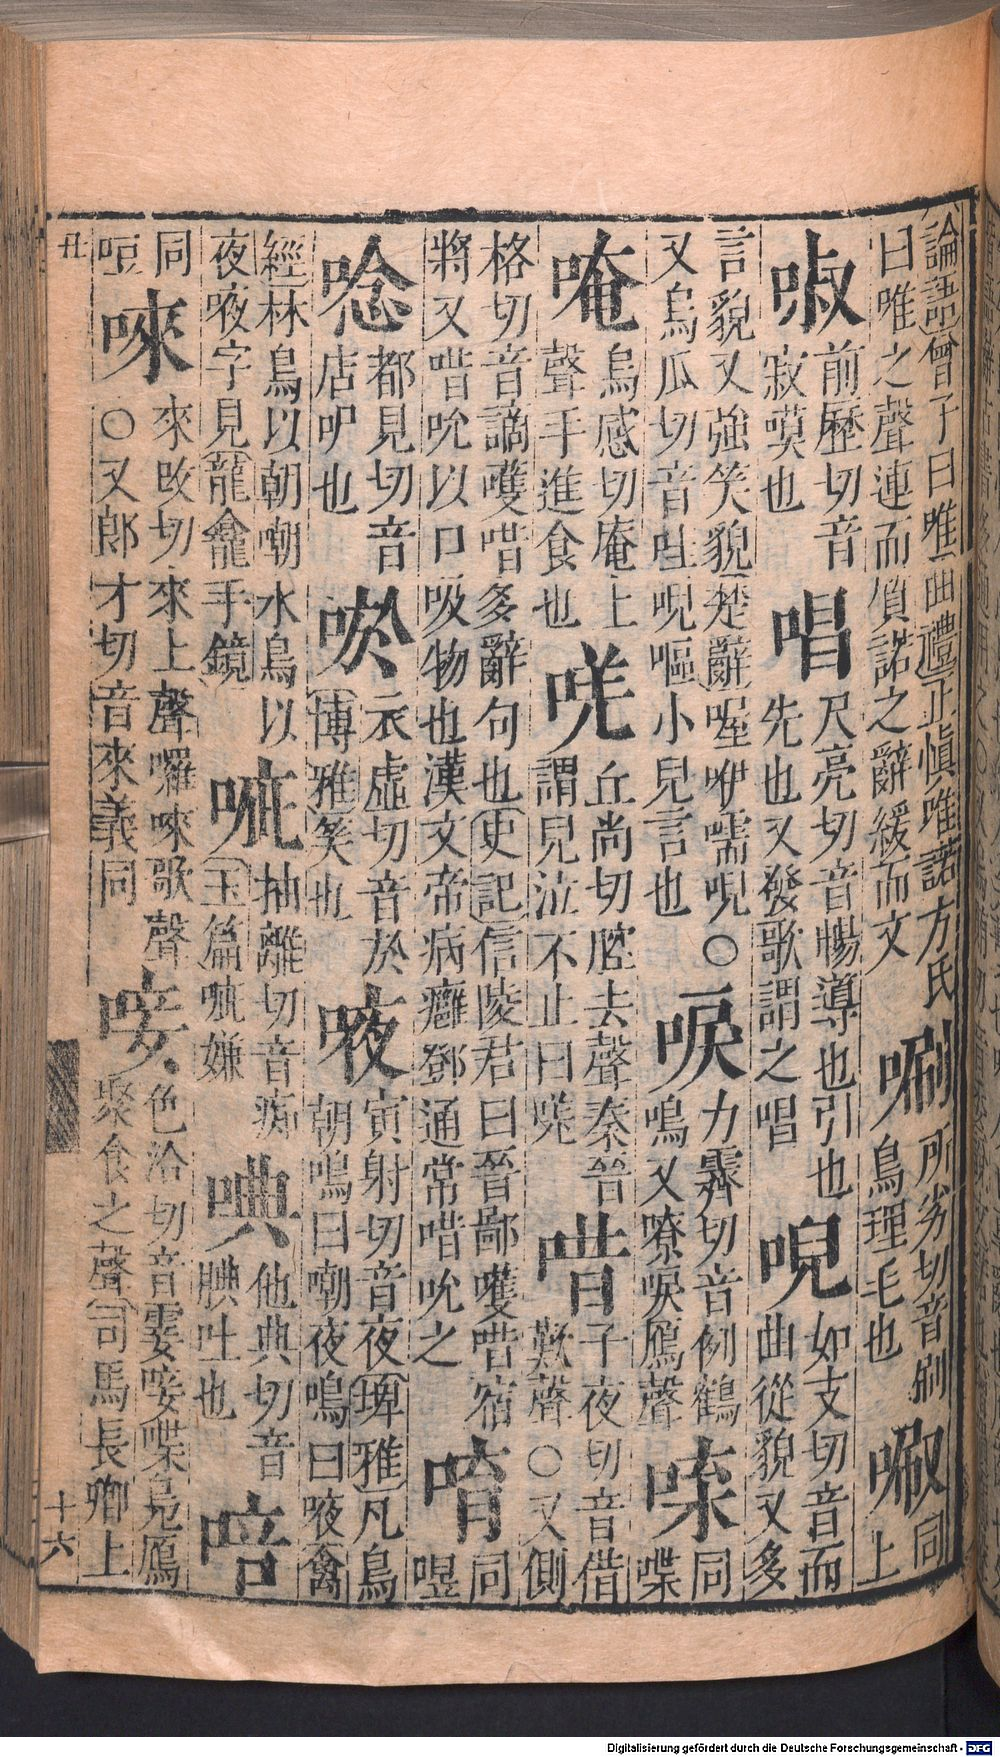 論語曾子曰唯曲禮正愼唯諾方氏
曰唯之聲連而質諾之辭緩而文
唰
所劣切音刷
鳥理毛也
同
上
前歷切音
寂嘆也
唱
尺亮切音暢導也引也
先也又發歌謂之唱
唲
如支切音而
曲從貌又多
言貌又強笑貌楚辭喔咿嚅唲〇
又烏瓜切音哇唲嘔小兒言也
唳
力霽切音例鶴
鳴又嘹唳鴈聲
同
喋
唵
烏感切庵上
聲手進食也
唴
丘尚切腔去聲秦晉
謂兒泣不止曰唴
唶
子夜切音借
歎聲〇又側
格切音謫嚄唶多辭句也史記信陵君曰晉鄙嚄唶宿
將又唶吮以口吸物也漢文帝病癰鄧通常唶吮之
唷
同
唸
都見切音
店吚也
唹
衣虛切音於
博雅笑也
㖡
寅射切音夜埤雅凡鳥
朝鳴曰嘲夜鳴曰㖡禽
經林鳥以朝嘲水鳥以
夜㖡字見龍龕手鏡
抽離切音痴
玉篇嫌
唺
他典切音
腆吐也
同
唻
來改切來上聲囉唻歌聲
〇又郎才切音來義同
唼
色洽切音霎唼喋鳧鴈
聚食之聲司馬長卿上
丑
十六
Digitalisierung gefördert durch die Deutsche Forschungsgemeinschaft - DFG